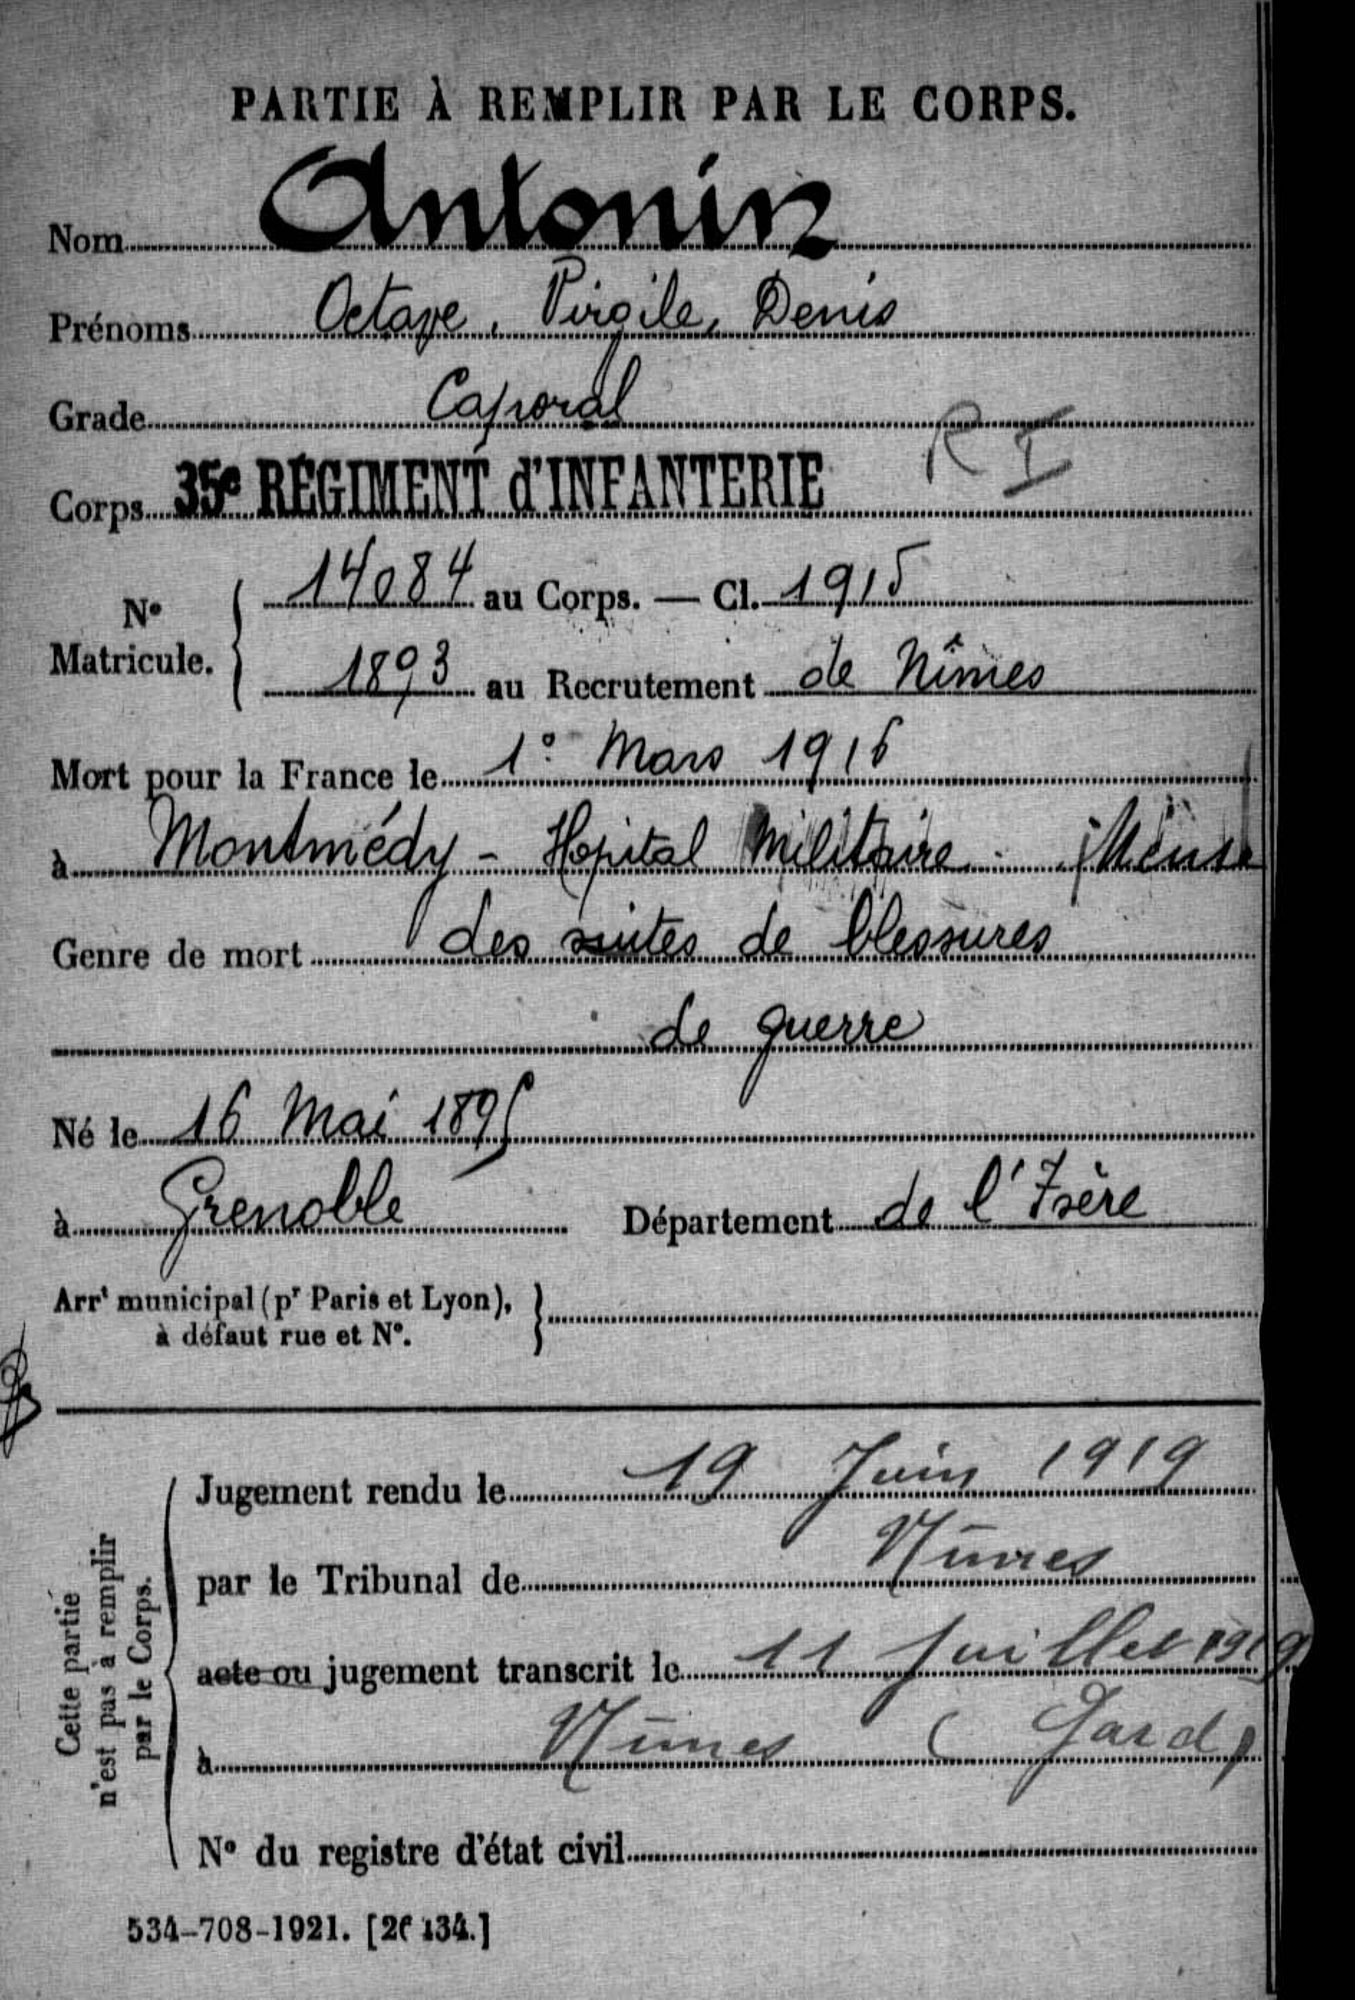 PARTIE À REMPLIR PAR LE CORPS.
Nom Antonin
Prénoms Octave, Virgile, Denis
Grade Caporal
R I
Corps 35e RÉGIMENT d'INFANTERIE
N° Matricule. { 14084 au Corps. — Cl. 1915
1893 au Recrutement de Nîmes
Mort pour la France le 1° Mars 1916
à Montmédy - Hôpital Militaire - (Meuse
Genre de mort des suites de blessures
de guerre
Né le 16 Mai 1895
à Grenoble Département de l'Isère
Arrt municipal (pr Paris et Lyon), }
à défaut rue et N°.
Cette partie
n'est pas à remplir
par le Corps.
Jugement rendu le 19 Juin 1919
par le Tribunal de Nîmes
acte ou jugement transcrit le 11 juillet 1919
à Nîmes (Gard)
N° du registre d'état civil
534-708-1921. [26434.]